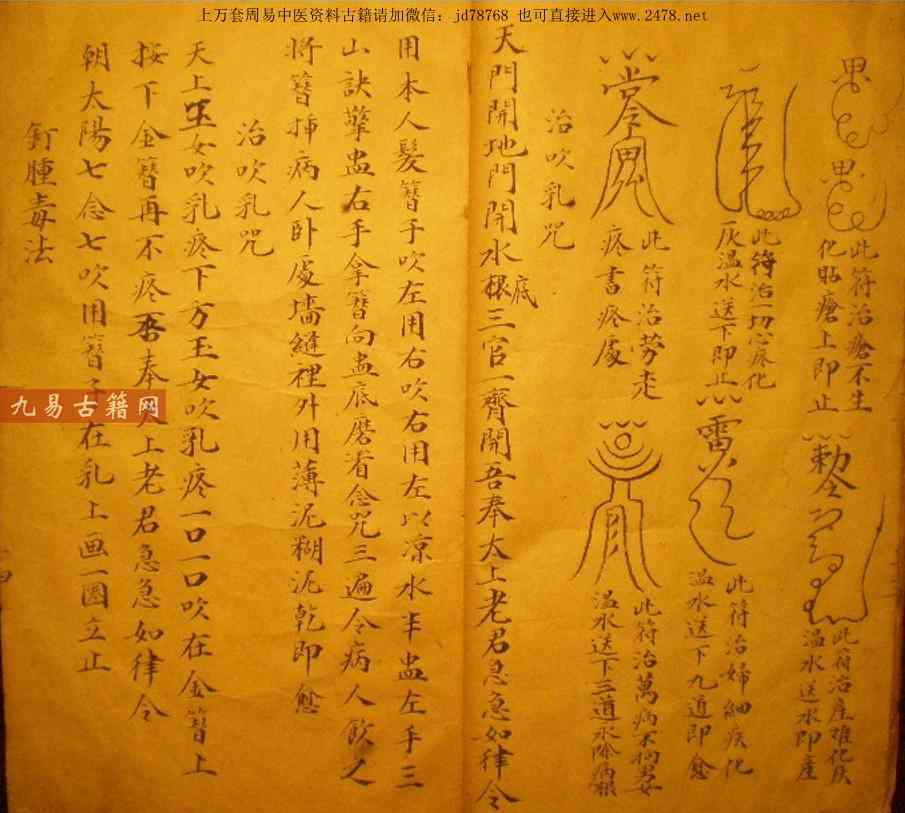 上万套周易中医资料古籍请加微信：jd78768 也可直接进入www.2478.net
此符治瘡不生
化貼瘡上即止
勅令
此符治產难化灰
温水送水即產
此符治一切心疼化
灰温水送下即止
雷
此符治婦細疾化
温水送下九道即愈
此符治劳走
疼書疼處
此符治萬病不拘男女
温水送下三道永除病根
治吹乳咒
天門開地門開水根底三官一齊開吾奉太上老君急急如律令
用本人髮簪子吹左用右吹右用左以凉水半盅左手三
山訣擎盅右手拿簪向盅底磨着念咒三遍令病人飲之
将簪揷病人卧處墙縫裡外用薄泥糊泥乾即愈
治吹乳咒
天上玉女吹乳疼下方玉女吹乳疼一口一口吹在金簪上
按下金簪再不疼吾奉太上老君急急如律令
朝太陽七念七吹用簪子在乳上画一圈立止
釘腫毒法
九易古籍网